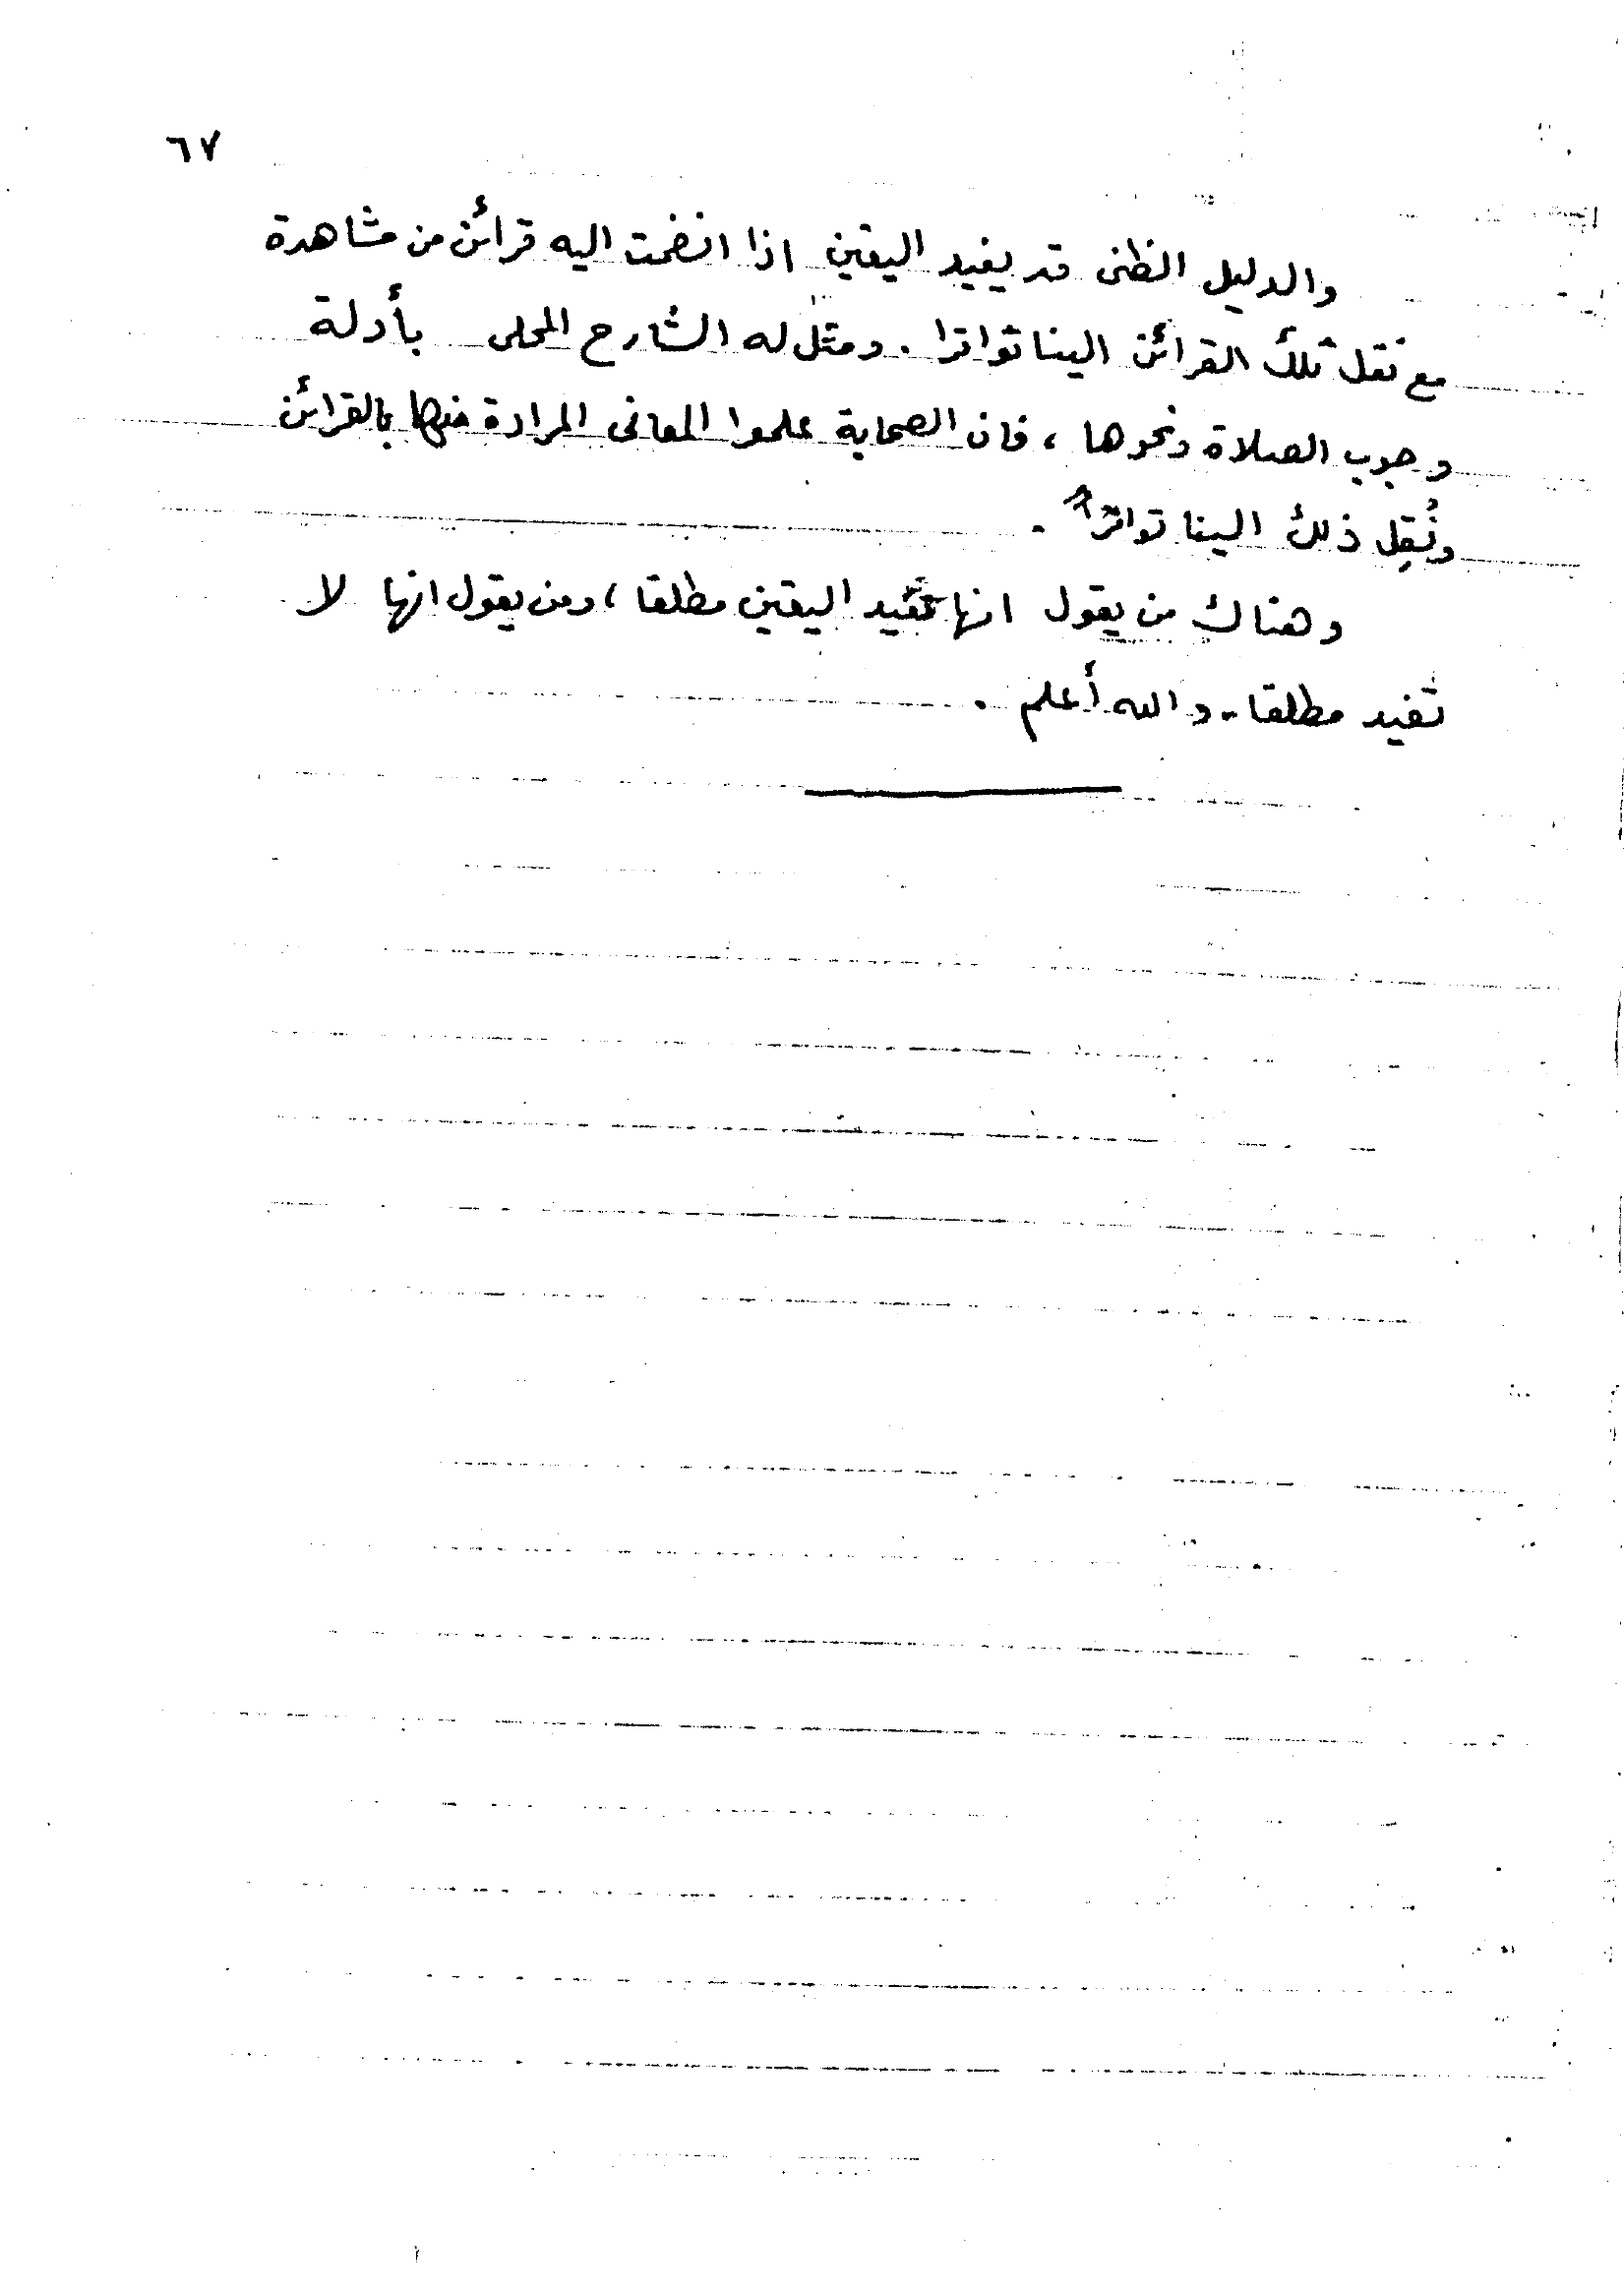 ٦٧
والدليل الظنى قد يفيد اليقين اذا انضمت اليه قرائن من مشاهدة
مع نقل تلك القرائن الينا تواترا . ومثل له الشارح المحلى بأدلة
وجوب الصلاة ونحوها ، فان الصحابة علموا المعانى المرادة منها بالقرائن
ونُقِل ذلك الينا تواترا .
وهناك من يقول انها تفيد اليقين مطلقا ، ومن يقول انها لا
تفيد مطلقا - والله أعلم .